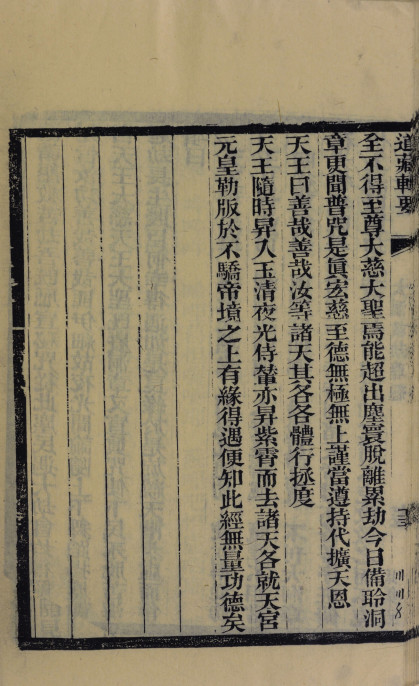 道藏輯要
全不得至尊大慈大聖焉能超出塵寰脫離累劫今日備聆洞
章更聞普咒是眞宏慈至德無極無上謹當遵持代擴天恩
天王曰善哉善哉汝等諸天其各各體行拯度
天王隨時昇入玉清夜光侍輦亦昇紫霄而去諸天各就天宮
元皇勒版於不驕帝墳之上有緣得遇便知此經無量功德矣